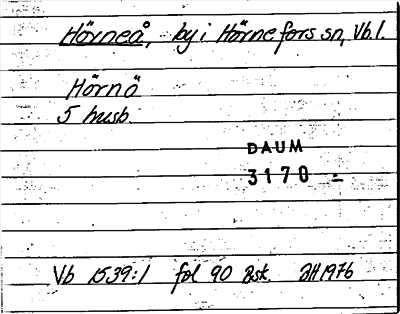 Hörneå, by i Hörnefors sn, Vb l.
Hörnö
5 husb.
DAUM
3170 -
Vb 1539:1 fol 90 Bsk. BH 1976